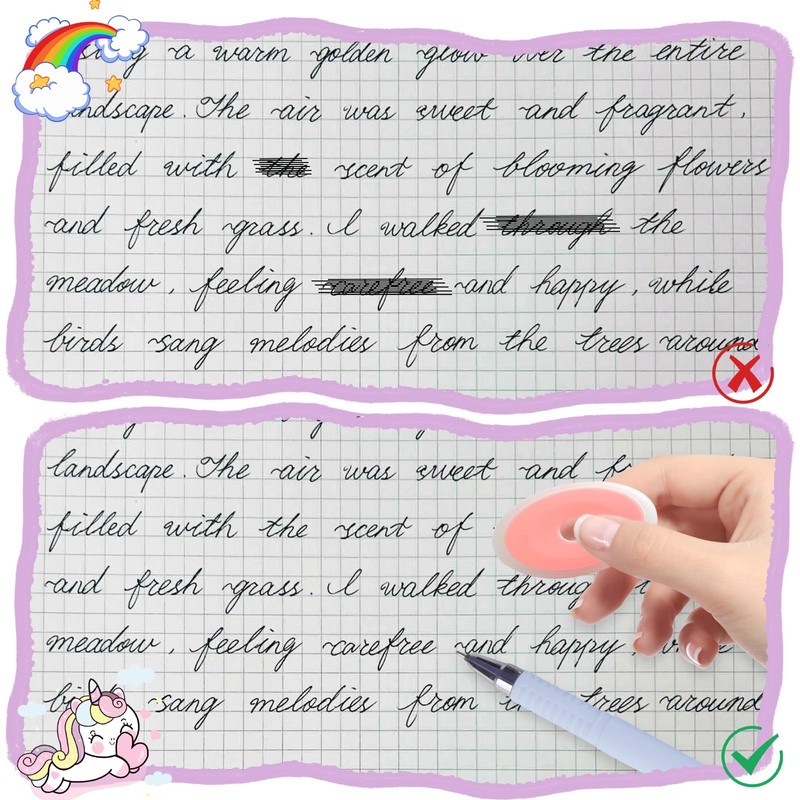 a warm golden glow over the entire
landscape. The air was sweet and fragrant,
filled with the scent of blooming flowers
and fresh grass. I walked through the
meadow, feeling carefree and happy, while
birds sang melodies from the trees around
landscape. The air was sweet and
filled with the scent of
and fresh grass. I walked through
meadow, feeling carefree and happy,
sang melodies from trees around